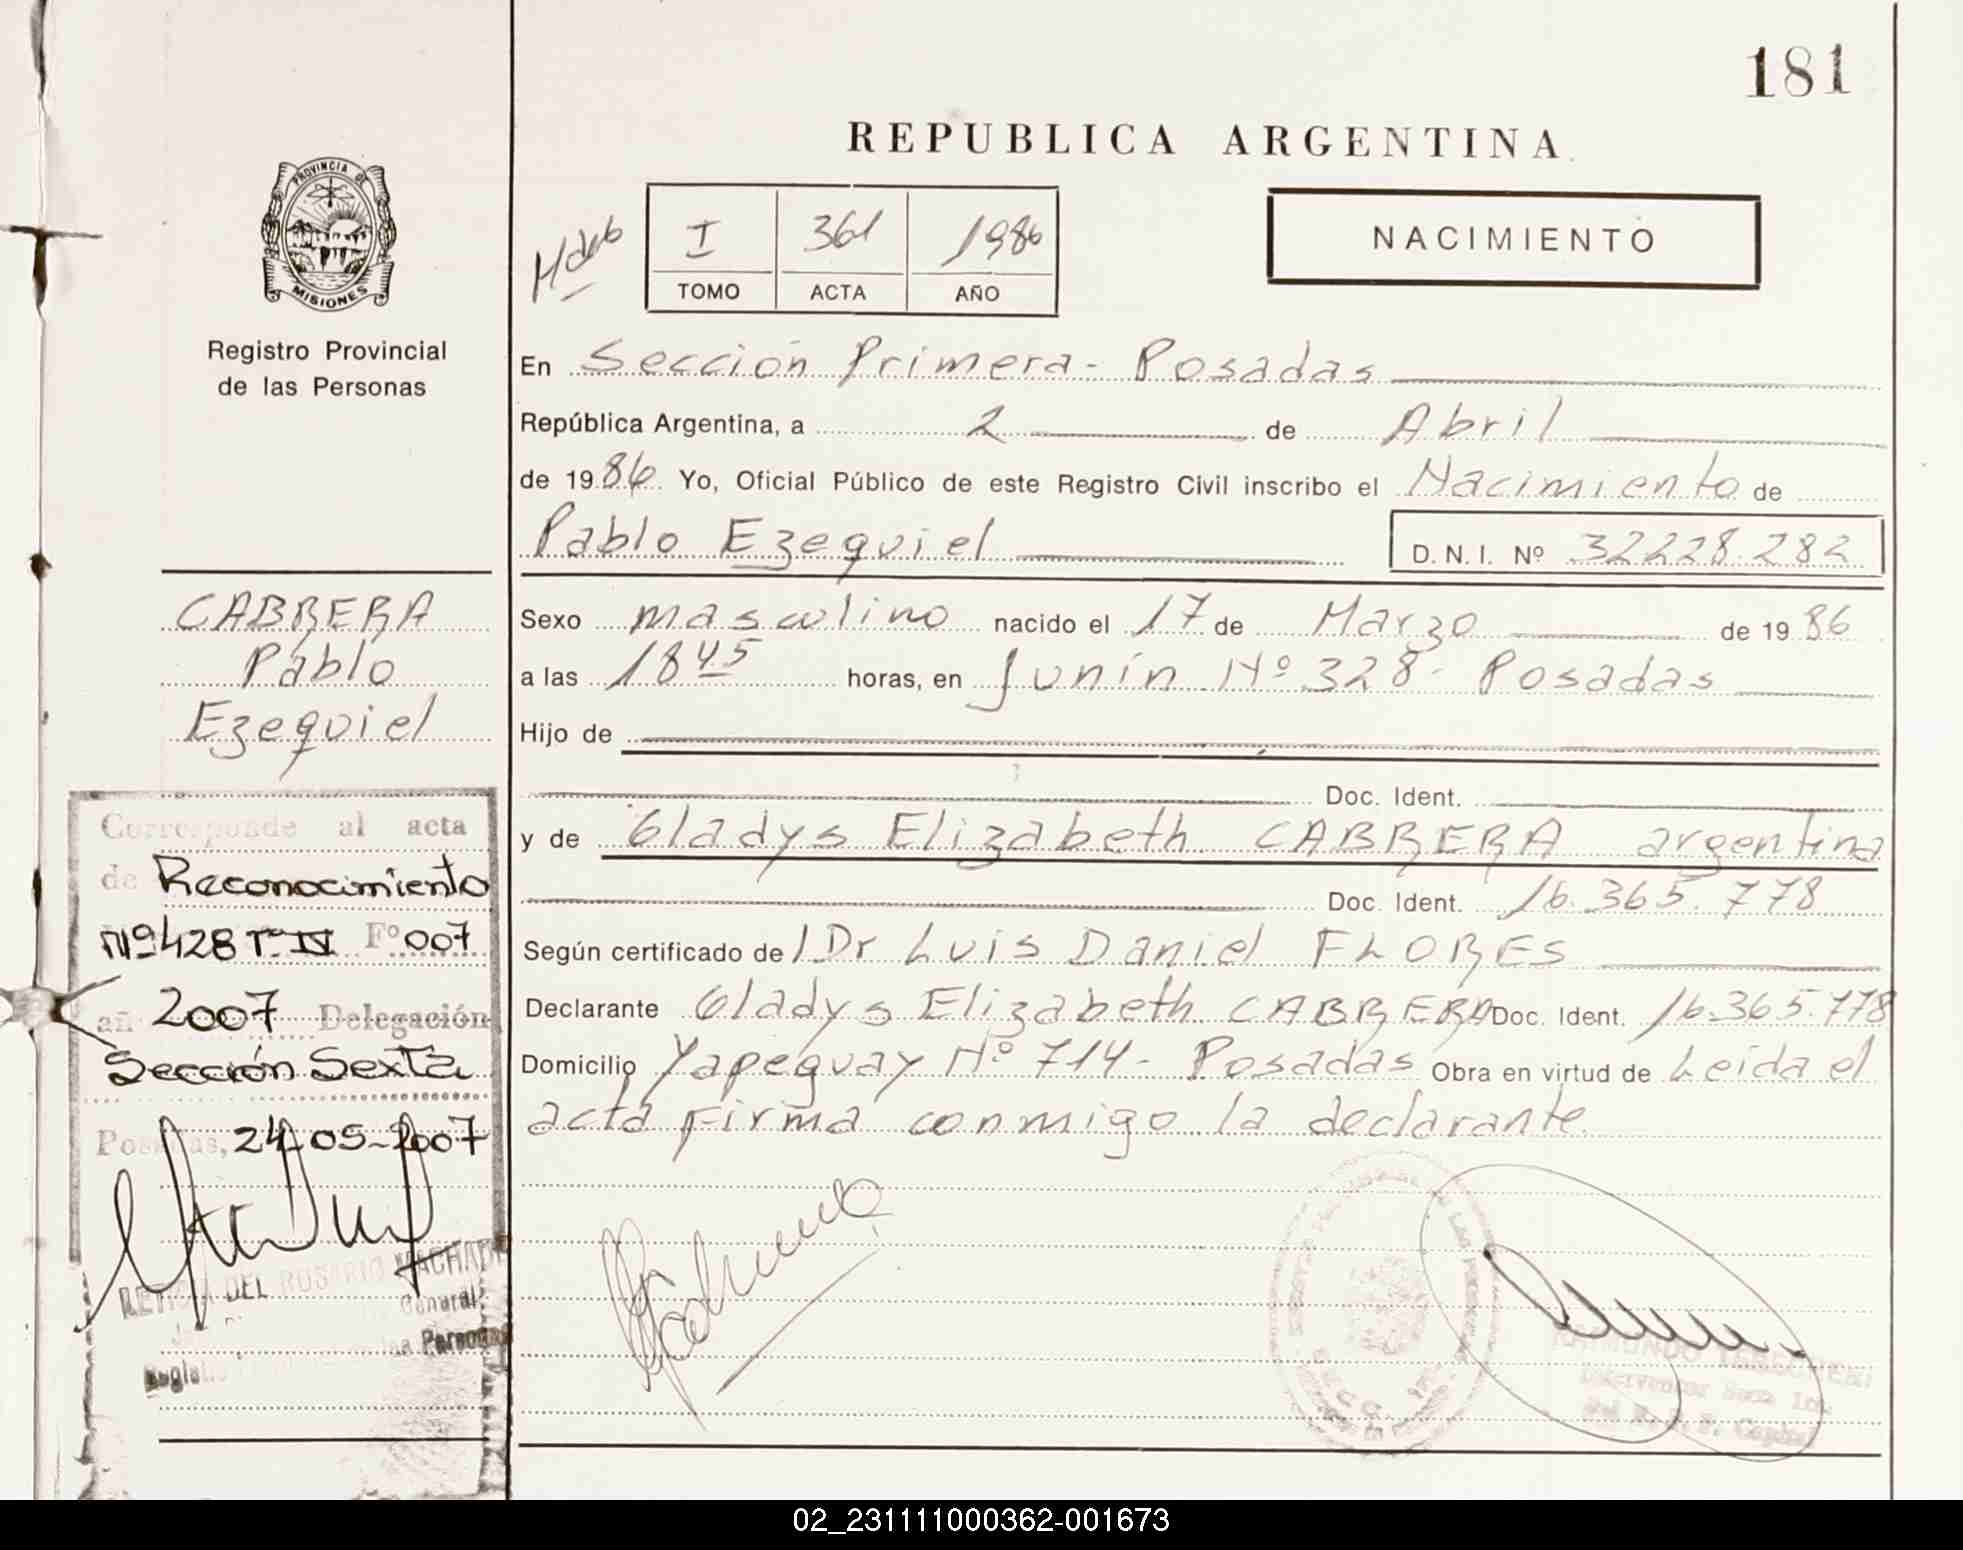 181
REPUBLICA ARGENTINA
PROVINCIA DE
MISIONES
Registro Provincial
de las Personas
I 361 1986
TOMO ACTA AÑO
NACIMIENTO
En Sección Primera - Posadas
República Argentina, a 2 de Abril
de 1986 Yo, Oficial Público de este Registro Civil inscribo el Nacimiento de
Pablo Ezequiel D. N. I. Nº 32228.282
Sexo masculino nacido el 17 de Marzo de 1986
a las 18 45 horas, en Junín Nº 328 - Posadas
Hijo de
Doc. Ident.
y de Gladys Elizabeth CABRERA argentina
Doc. Ident. 16.365.778
Según certificado de l Dr Luis Daniel FLORES
Declarante Gladys Elizabeth CABRERA Doc. Ident. 16.365.778
Domicilio Yapeguay Nº 714 - Posadas Obra en virtud de Leida el
acta firma conmigo la declarante
CABRERA
Pablo
Ezequiel
Corresponde al acta
de Reconocimiento
Nº 428 Tº IV Fº 007
añ 2007 Delegación
Sección Sexta
Posadas, 24-05-2007
DEL ROSARIO
General
las Personas
02_231111000362-001673